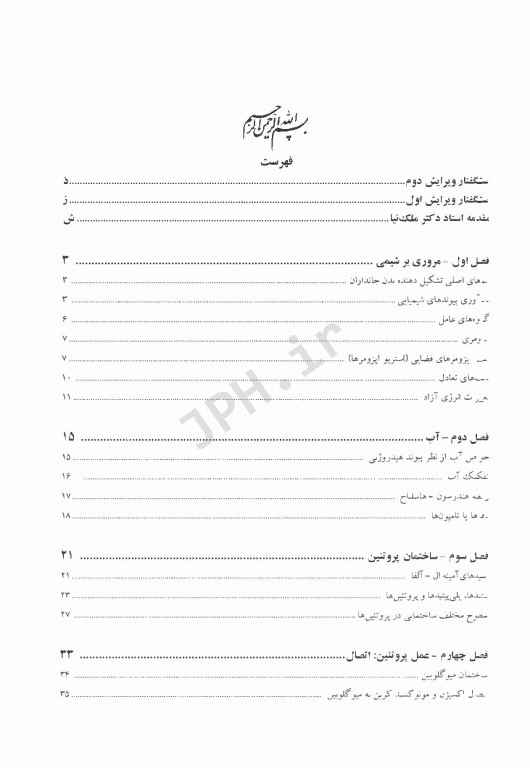 بسم الله الرحمن الرحیم
فهرست
ستگفتار ویرایش دوم ... ذ
ستگفتار ویرایش اول ... ز
مقدمه استاد دکتر ملک‌نیا ... ش
فصل اول - مروری بر شیمی ... ۳
های اصلی تشکیل دهنده بدن جانداران ... ۳
آوری پیوندهای شیمیایی ... ۳
گروه‌های عامل ... ۶
ومری ... ۷
یزومرهای فضایی (استریو ایزومرها) ... ۷
های تعادل ... ۱۰
ت انرژی آزاد ... ۱۱
فصل دوم - آب ... ۱۵
آب از نظر پیوند هیدروژنی ... ۱۵
تفکیک آب ... ۱۶
هندرسون - هاسلباخ ... ۱۷
ها یا تامپون‌ها ... ۱۸
فصل سوم - ساختمان پروتئین ... ۲۱
سیدهای آمینه ال - آلفا ... ۲۱
پلی‌پپتیدها و پروتئین‌ها ... ۲۳
سطوح مختلف ساختمانی در پروتئین‌ها ... ۲۷
فصل چهارم - عمل پروتئین: اتصال ... ۳۳
ساختمان میوگلوبین ... ۳۴
ال اکسیژن و مونوکسید کربن به میوگلوبین ... ۳۵
JPH.ir